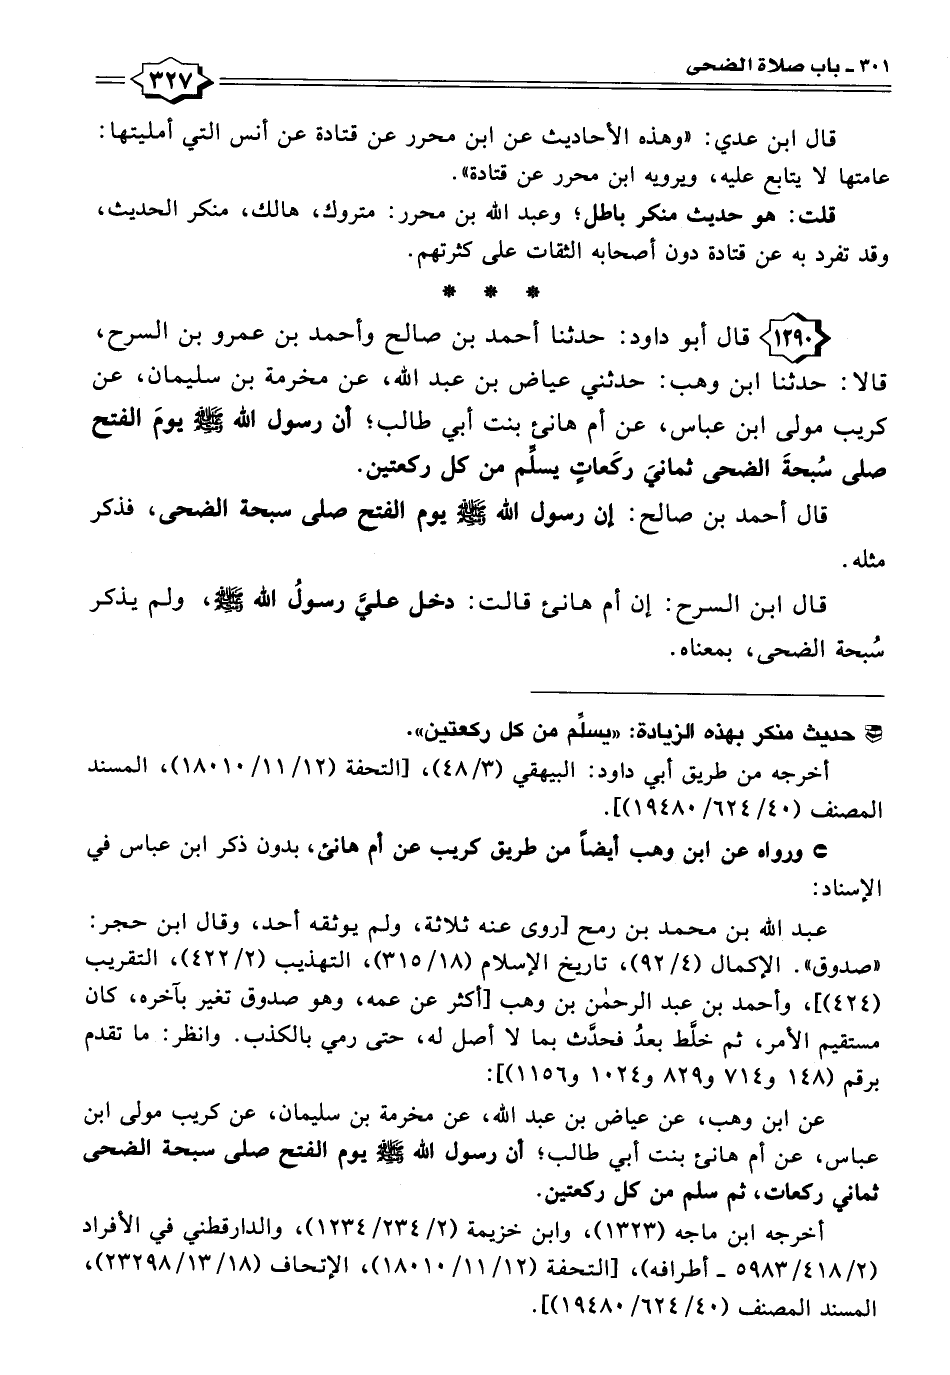 ٣٠١ ـ باب صلاة الضحى
٣٢٧
قال ابن عدي: «وهذه الأحاديث عن ابن محرر عن قتادة عن أنس التي أمليتها:
عامتها لا يتابع عليه، ويرويه ابن محرر عن قتادة».
قلت: هو حديث منكر باطل؛ وعبد الله بن محرر: متروك، هالك، منكر الحديث،
وقد تفرد به عن قتادة دون أصحابه الثقات على كثرتهم.
* * *
١٢٩٠ قال أبو داود: حدثنا أحمد بن صالح وأحمد بن عمرو بن السرح،
قالا: حدثنا ابن وهب: حدثني عياض بن عبد الله، عن مخرمة بن سليمان، عن
كريب مولى ابن عباس، عن أم هانئ بنت أبي طالب؛ أن رسول الله ﷺ يومَ الفتح
صلى سُبحةَ الضحى ثمانيَ ركَعاتٍ يسلِّم من كل ركعتين.
قال أحمد بن صالح: إن رسول الله ﷺ يوم الفتح صلى سبحة الضحى، فذكر
مثله.
قال ابن السرح: إن أم هانئ قالت: دخل عليَّ رسولُ الله ﷺ، ولم يذكر
سُبحة الضحى، بمعناه.
حديث منكر بهذه الزيادة: «يسلِّم من كل ركعتين».
أخرجه من طريق أبي داود: البيهقي (٤٨/٣)، [التحفة (١٨٠١٠/١١/١٢)، المسند
المصنف (١٩٤٨٠/٦٢٤/٤٠)].
⊂ ورواه عن ابن وهب أيضاً من طريق كريب عن أم هانئ، بدون ذكر ابن عباس في
الإسناد:
عبد الله بن محمد بن رمح [روى عنه ثلاثة، ولم يوثقه أحد، وقال ابن حجر:
«صدوق». الإكمال (٩٢/٤)، تاريخ الإسلام (٣١٥/١٨)، التهذيب (٤٢٢/٢)، التقريب
(٤٢٤)]، وأحمد بن عبد الرحمٰن بن وهب [أكثر عن عمه، وهو صدوق تغير بآخره، كان
مستقيم الأمر، ثم خلَّط بعدُ فحدَّث بما لا أصل له، حتى رمي بالكذب. وانظر: ما تقدم
برقم (١٤٨ و٧١٤ و٨٢٩ و١٠٢٤ و١١٥٦)]:
عن ابن وهب، عن عياض بن عبد الله، عن مخرمة بن سليمان، عن كريب مولى ابن
عباس، عن أم هانئ بنت أبي طالب؛ أن رسول الله ﷺ يوم الفتح صلى سبحة الضحى
ثماني ركعات، ثم سلم من كل ركعتين.
أخرجه ابن ماجه (١٣٢٣)، وابن خزيمة (١٢٣٤/٢٣٤/٢)، والدارقطني في الأفراد
(٥٩٨٣/٤١٨/٢ ـ أطرافه)، [التحفة (١٨٠١٠/١١/١٢)، الإتحاف (٢٣٢٩٨/١٣/١٨)،
المسند المصنف (١٩٤٨٠/٦٢٤/٤٠)].